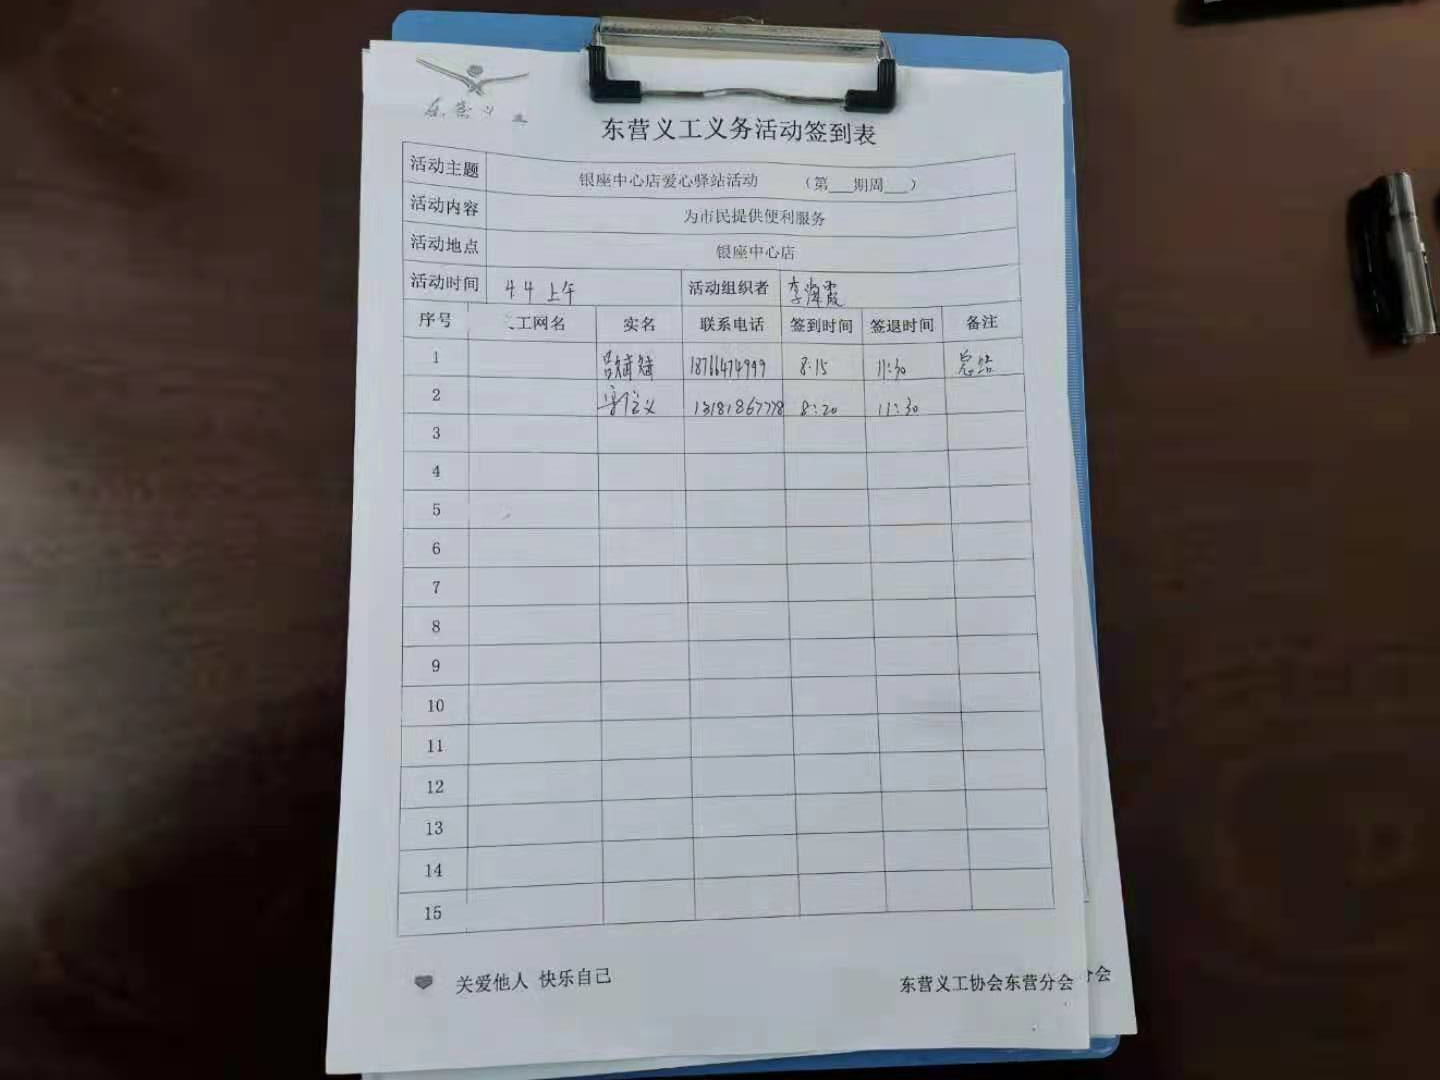 东营义工
东营义工义务活动签到表
活动主题 银座中心店爱心驿站活动 （第___期周___）
活动内容 为市民提供便利服务
活动地点 银座中心店
活动时间 4.4 上午 活动组织者 李海霞
序号 工网名 实名 联系电话 签到时间 签退时间 备注
1 吕斌斌 18766474999 8:15 11:30 总站
2 信义 13181867778 8:20 11:30
3
4
5
6
7
8
9
10
11
12
13
14
15
关爱他人 快乐自己 东营义工协会东营分会 分会